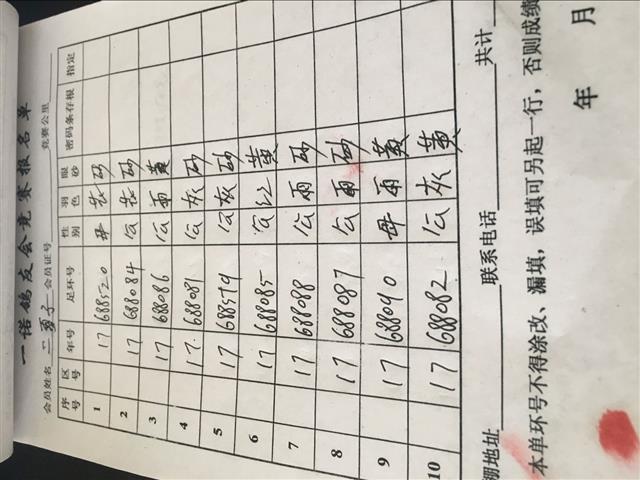 一诺鸽友会竞赛报名单
会员姓名 三勇子 会员证号 竞赛公里
序号 区号 年号 足环号 性别 羽色 眼砂 密码条存根 指定
1 17 688520 母 花 砂
2 17 688084 公 花 砂
3 17 688086 公 雨 黄
4 17. 688081 公 灰 砂
5 17 688519 公 灰 砂
6 17 688085 公 红 黄
7 17 688088 公 雨 砂
8 17 688087 公 雨 砂
9 17 688090 母 雨 黄
10 17 688082 公 灰 黄
棚地址 联系电话 共计
本单环号不得涂改、漏填，误填可另起一行，否则成绩
年 月